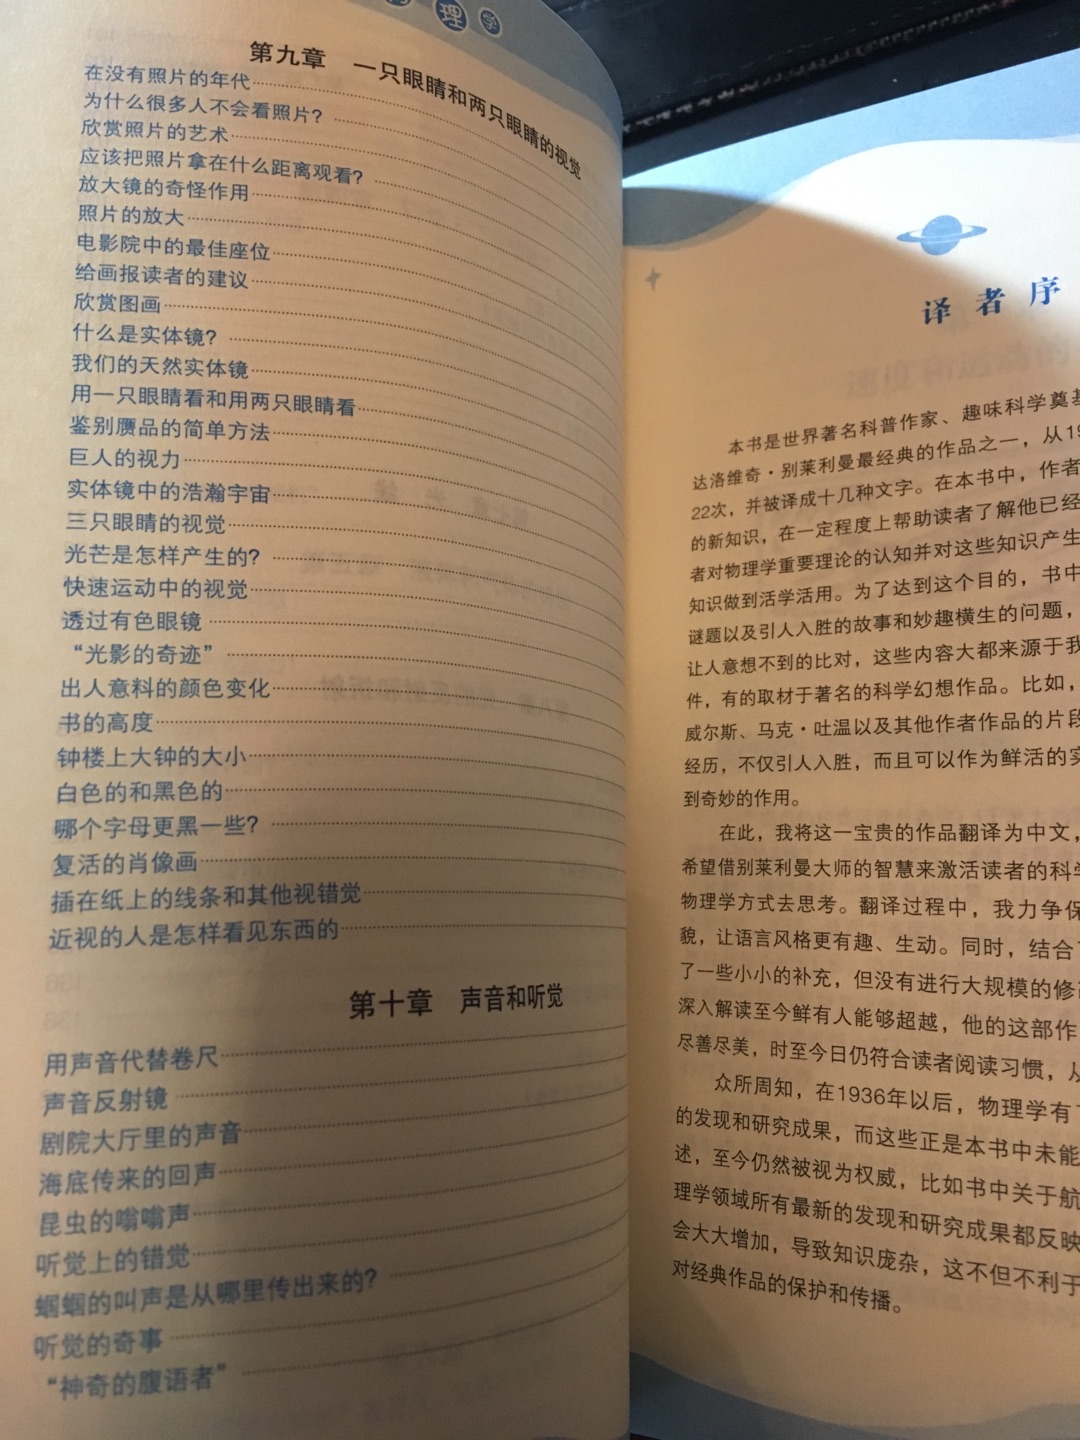 理学
第九章 一只眼睛和两只眼睛的视觉
在没有照片的年代
为什么很多人不会看照片？
欣赏照片的艺术
应该把照片拿在什么距离观看？
放大镜的奇怪作用
照片的放大
电影院中的最佳座位
给画报读者的建议
欣赏图画
什么是实体镜？
我们的天然实体镜
用一只眼睛看和用两只眼睛看
鉴别赝品的简单方法
巨人的视力
实体镜中的浩瀚宇宙
三只眼睛的视觉
光芒是怎样产生的？
快速运动中的视觉
透过有色眼镜
“光影的奇迹”
出人意料的颜色变化
书的高度
钟楼上大钟的大小
白色的和黑色的
哪个字母更黑一些？
复活的肖像画
插在纸上的线条和其他视错觉
近视的人是怎样看见东西的
第十章 声音和听觉
用声音代替卷尺
声音反射镜
剧院大厅里的声音
海底传来的回声
昆虫的嗡嗡声
听觉上的错觉
蝈蝈的叫声是从哪里传出来的？
听觉的奇事
“神奇的腹语者”
译者序
本书是世界著名科普作家、趣味科学奠基
达洛维奇·别莱利曼最经典的作品之一，从19
22次，并被译成十几种文字。在本书中，作者
的新知识，在一定程度上帮助读者了解他已经
者对物理学重要理论的认知并对这些知识产生
知识做到活学活用。为了达到这个目的，书中
谜题以及引人入胜的故事和妙趣横生的问题，
让人意想不到的比对，这些内容大都来源于我
件，有的取材于著名的科学幻想作品。比如，
威尔斯、马克·吐温以及其他作者作品的片段
经历，不仅引人入胜，而且可以作为鲜活的实
到奇妙的作用。
在此，我将这一宝贵的作品翻译为中文，
希望借别莱利曼大师的智慧来激活读者的科学
物理学方式去思考。翻译过程中，我力争保
貌，让语言风格更有趣、生动。同时，结合
了一些小小的补充，但没有进行大规模的修
深入解读至今鲜有人能够超越，他的这部作
尽善尽美，时至今日仍符合读者阅读习惯，从
众所周知，在1936年以后，物理学有了
的发现和研究成果，而这些正是本书中未能
述，至今仍然被视为权威，比如书中关于航
理学领域所有最新的发现和研究成果都反映
会大大增加，导致知识庞杂，这不但不利于
对经典作品的保护和传播。